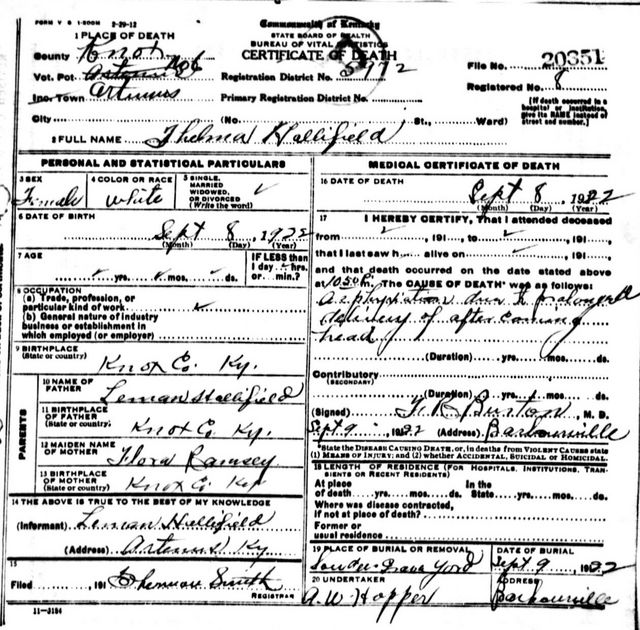 FORM V S 1-500M 2-29-12
Commonwealth of Kentucky
STATE BOARD OF HEALTH
BUREAU OF VITAL STATISTICS
CERTIFICATE OF DEATH
1 PLACE OF DEATH
County Knox
Vot. Pct.
Inc. Town Artemus
City (No. St., Ward)
Registration District No.
Primary Registration District No.
File No. 20351
Registered No. 8
[If death occurred in a hospital or institution, give its NAME instead of street and number.]
2 FULL NAME Thelma Hollifield
PERSONAL AND STATISTICAL PARTICULARS
3 SEX Female
4 COLOR OR RACE White
5 SINGLE, MARRIED WIDOWED, OR DIVORCED (Write the word)
6 DATE OF BIRTH Sept 8, 1922
(Month) (Day) (Year)
7 AGE yrs. mos. ds.
IF LESS than 1 day hrs. or min.?
8 OCCUPATION
(a) Trade, profession, or particular kind of work
(b) General nature of industry business or establishment in which employed (or employer)
9 BIRTHPLACE (State or country) Knox Co. Ky.
PARENTS
10 NAME OF FATHER Leman Hollifield
11 BIRTHPLACE OF FATHER (State or country) Knox Co. Ky.
12 MAIDEN NAME OF MOTHER Flora Ramsey
13 BIRTHPLACE OF MOTHER (State or country) Knox Co Ky
14 THE ABOVE IS TRUE TO THE BEST OF MY KNOWLEDGE
(Informant) Leman Hollifield
(Address) Artemus Ky
15
Filed , 191 Sherman Smith
REGISTRAR
11-3184
MEDICAL CERTIFICATE OF DEATH
16 DATE OF DEATH Sept 8, 1922
(Month) (Day) (Year)
17 I HEREBY CERTIFY, That I attended deceased
from , 191 to , 191 ,
that I last saw h alive on , 191 ,
and that death occurred on the date stated above
at 1050 P m. The CAUSE OF DEATH* was as follows:
Asphyxiation due to prolonged
delivery of after coming
head
(Duration) yrs. mos. ds.
Contributory
(SECONDARY)
(Duration) yrs. mos. ds.
(Signed) Burton, M. D.
Sept 9 1922 (Address) Barbourville
*State the DISEASE CAUSING DEATH, or, in deaths from VIOLENT CAUSES state (1) MEANS OF INJURY; and (2) whether ACCIDENTAL, SUICIDAL or HOMICIDAL.
18 LENGTH OF RESIDENCE (FOR HOSPITALS, INSTITUTIONS, TRANSIENTS OR RECENT RESIDENTS)
At place of death yrs. mos. ds. In the State yrs. mos. ds.
Where was disease contracted, if not at place of death?
Former or usual residence
19 PLACE OF BURIAL OR REMOVAL Grave Yard
DATE OF BURIAL Sept 9, 1922
20 UNDERTAKER A. W. Hopper
ADDRESS Barbourville